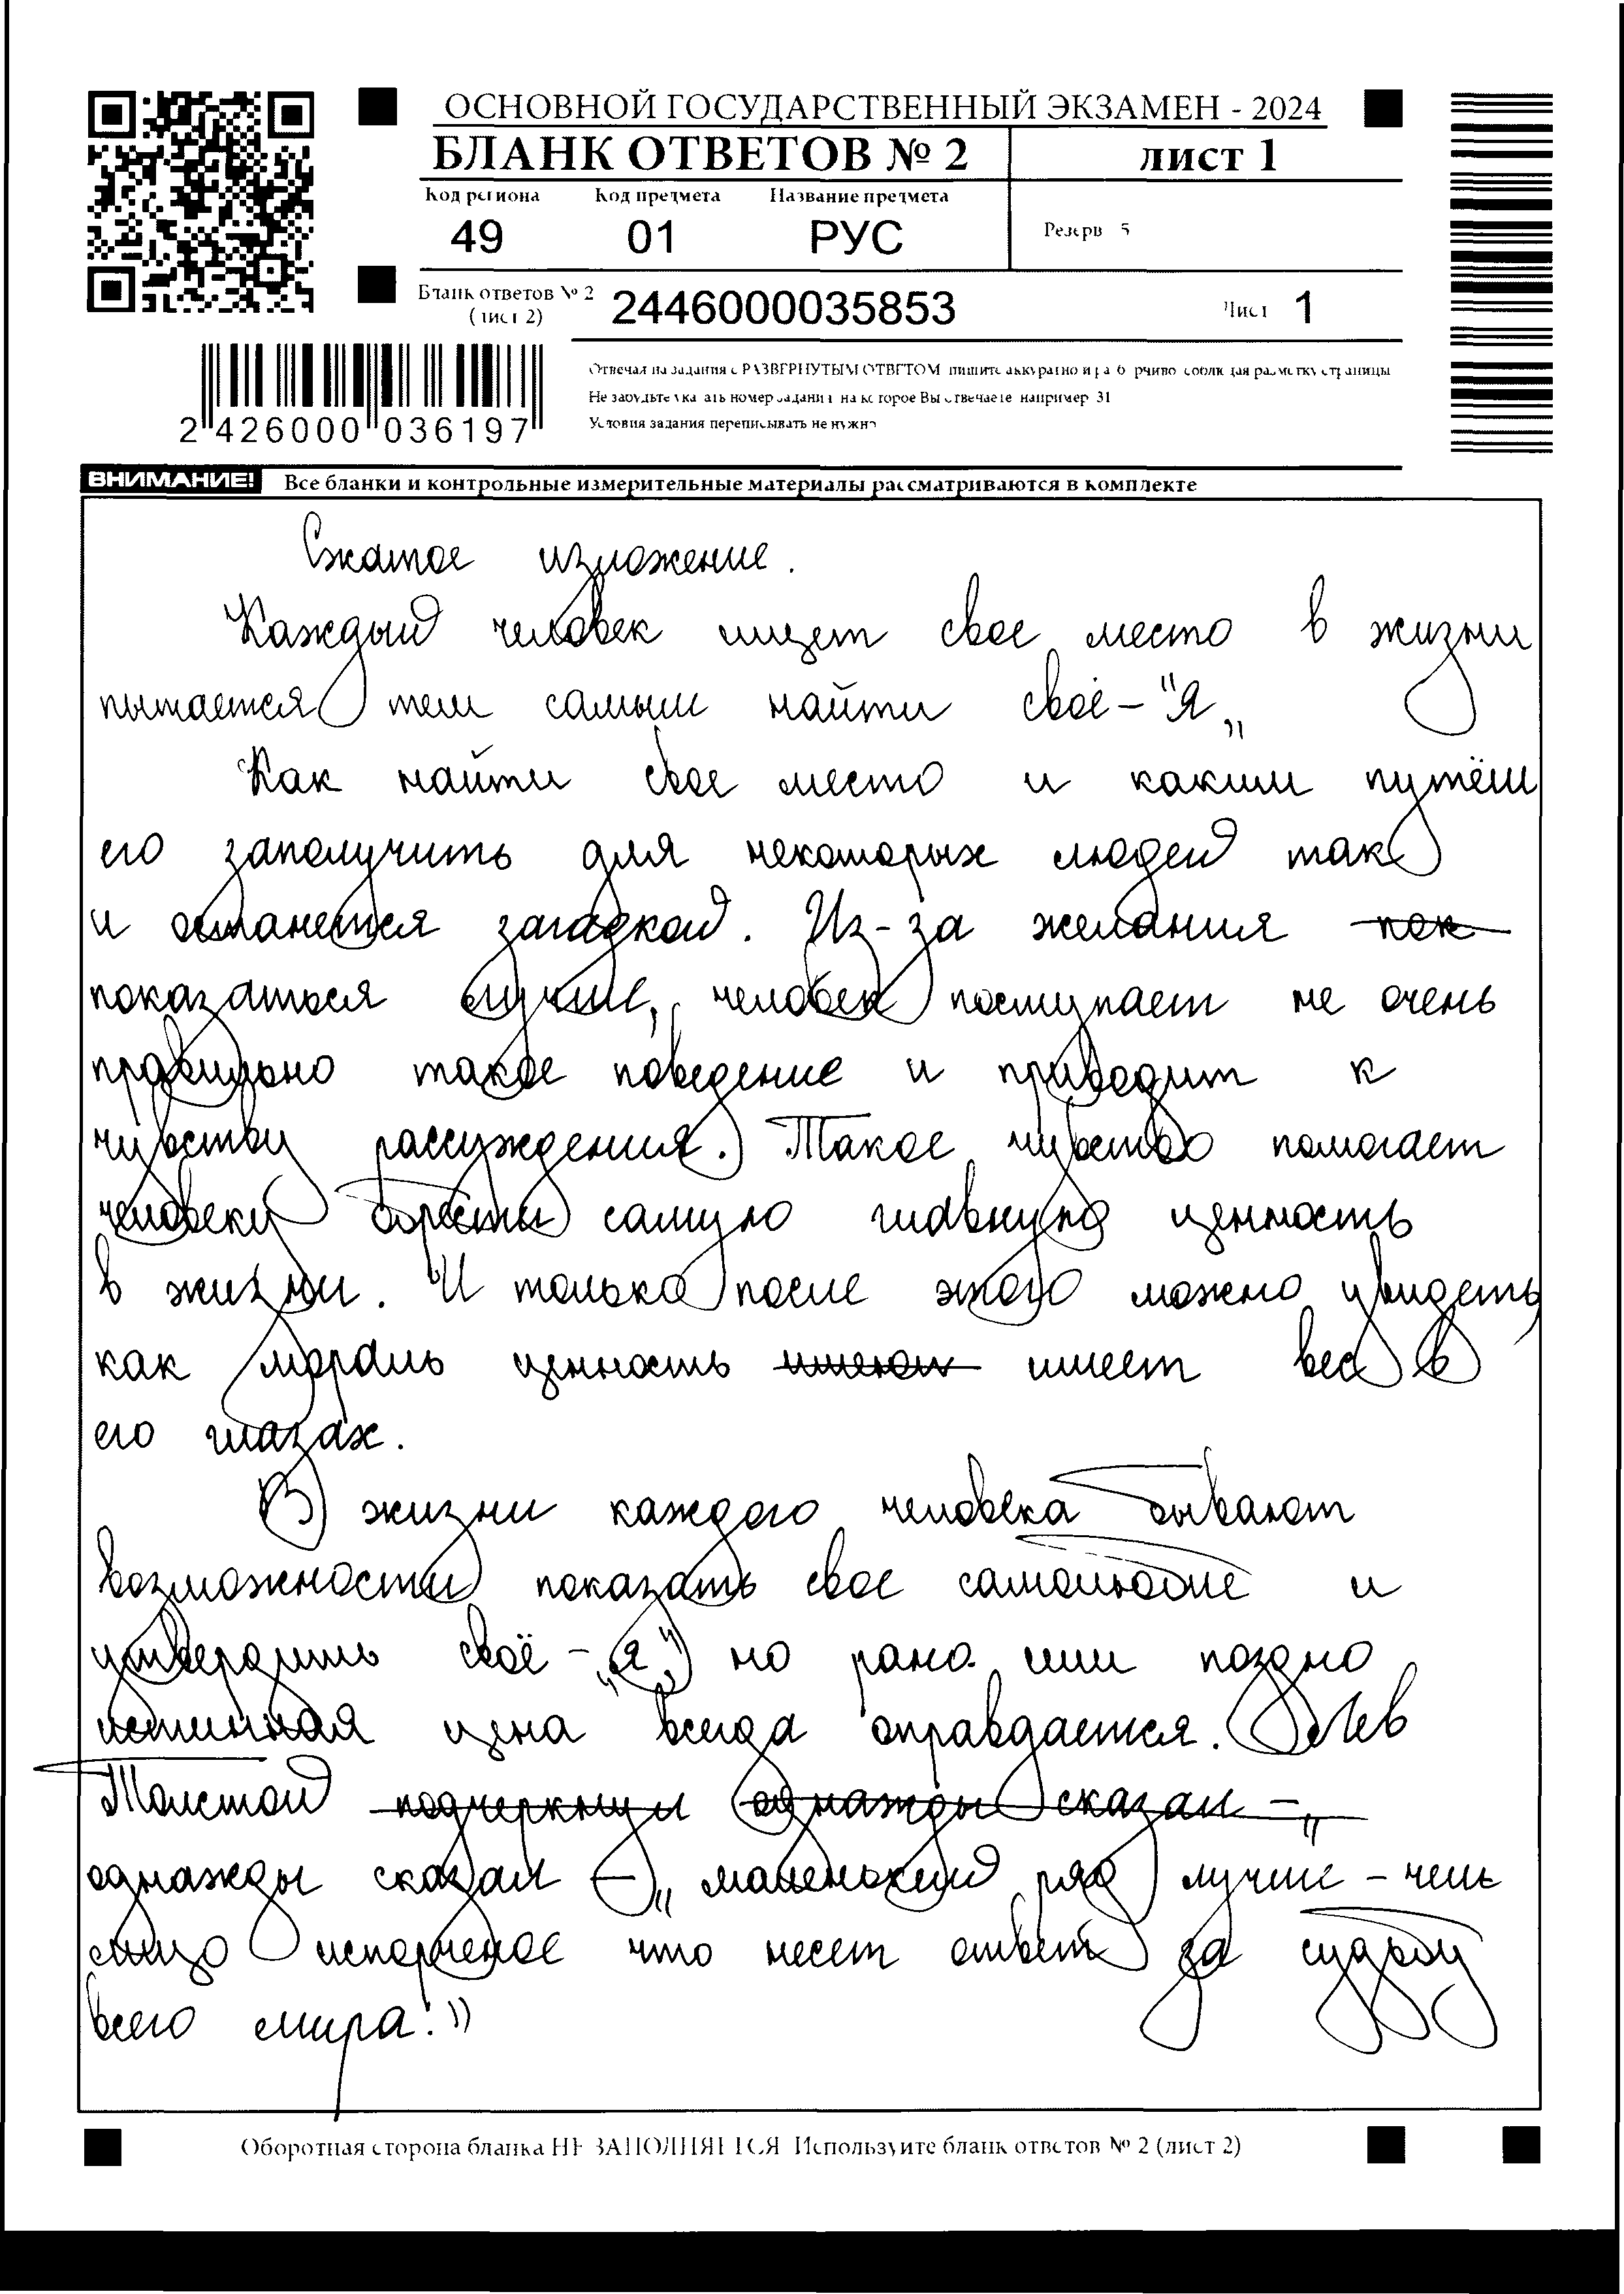 ОСНОВНОЙ ГОСУДАРСТВЕННЫЙ ЭКЗАМЕН - 2024
БЛАНК ОТВЕТОВ № 2 лист 1
Код региона Код предмета Название предмета
49 01 РУС Резерв 5
Бланк ответов № 2 (лист 2) 2446000035853 Лист 1
Отвечая на задания с РАЗВЕРНУТЫМ ОТВЕТОМ пишите аккуратно и разборчиво соблюдая разметку страницы
Не забудьте указать номер задания на которое Вы отвечаете например 31
Условия задания переписывать не нужно
2 426000 036197
ВНИМАНИЕ! Все бланки и контрольные измерительные материалы рассматриваются в комплекте
Сжатое изложение.
Каждый человек ищет свое место в жизни
пытается тем самым найти своё - "Я„
Как найти свое место и каким путём
его заполучить для некоторых людей так
и останется загадкой. Из-за желания пок
показаться лучше, человек поступает не очень
правильно такое поведение и приводит к
чувству рассуждения. Такое чувство помогает
человеку обрести самую главную ценность
в жизни. И только после этого можно увидеть
как мораль ценность имеет вес в
его глазах.
В жизни каждого человека бывают
возможности показать свое самолюбие и
утвердить своё - „Я" но рано или поздно
истинная цена всегда оправдается. Лев
Толстой подчеркнул однажды сказал - „
однажды сказал - „маленький ряд лучше - чем
испорченое что несет ответ за судьбу
всего мира."
Оборотная сторона бланка НЕ ЗАПОЛНЯЕТСЯ Используйте бланк ответов № 2 (лист 2)